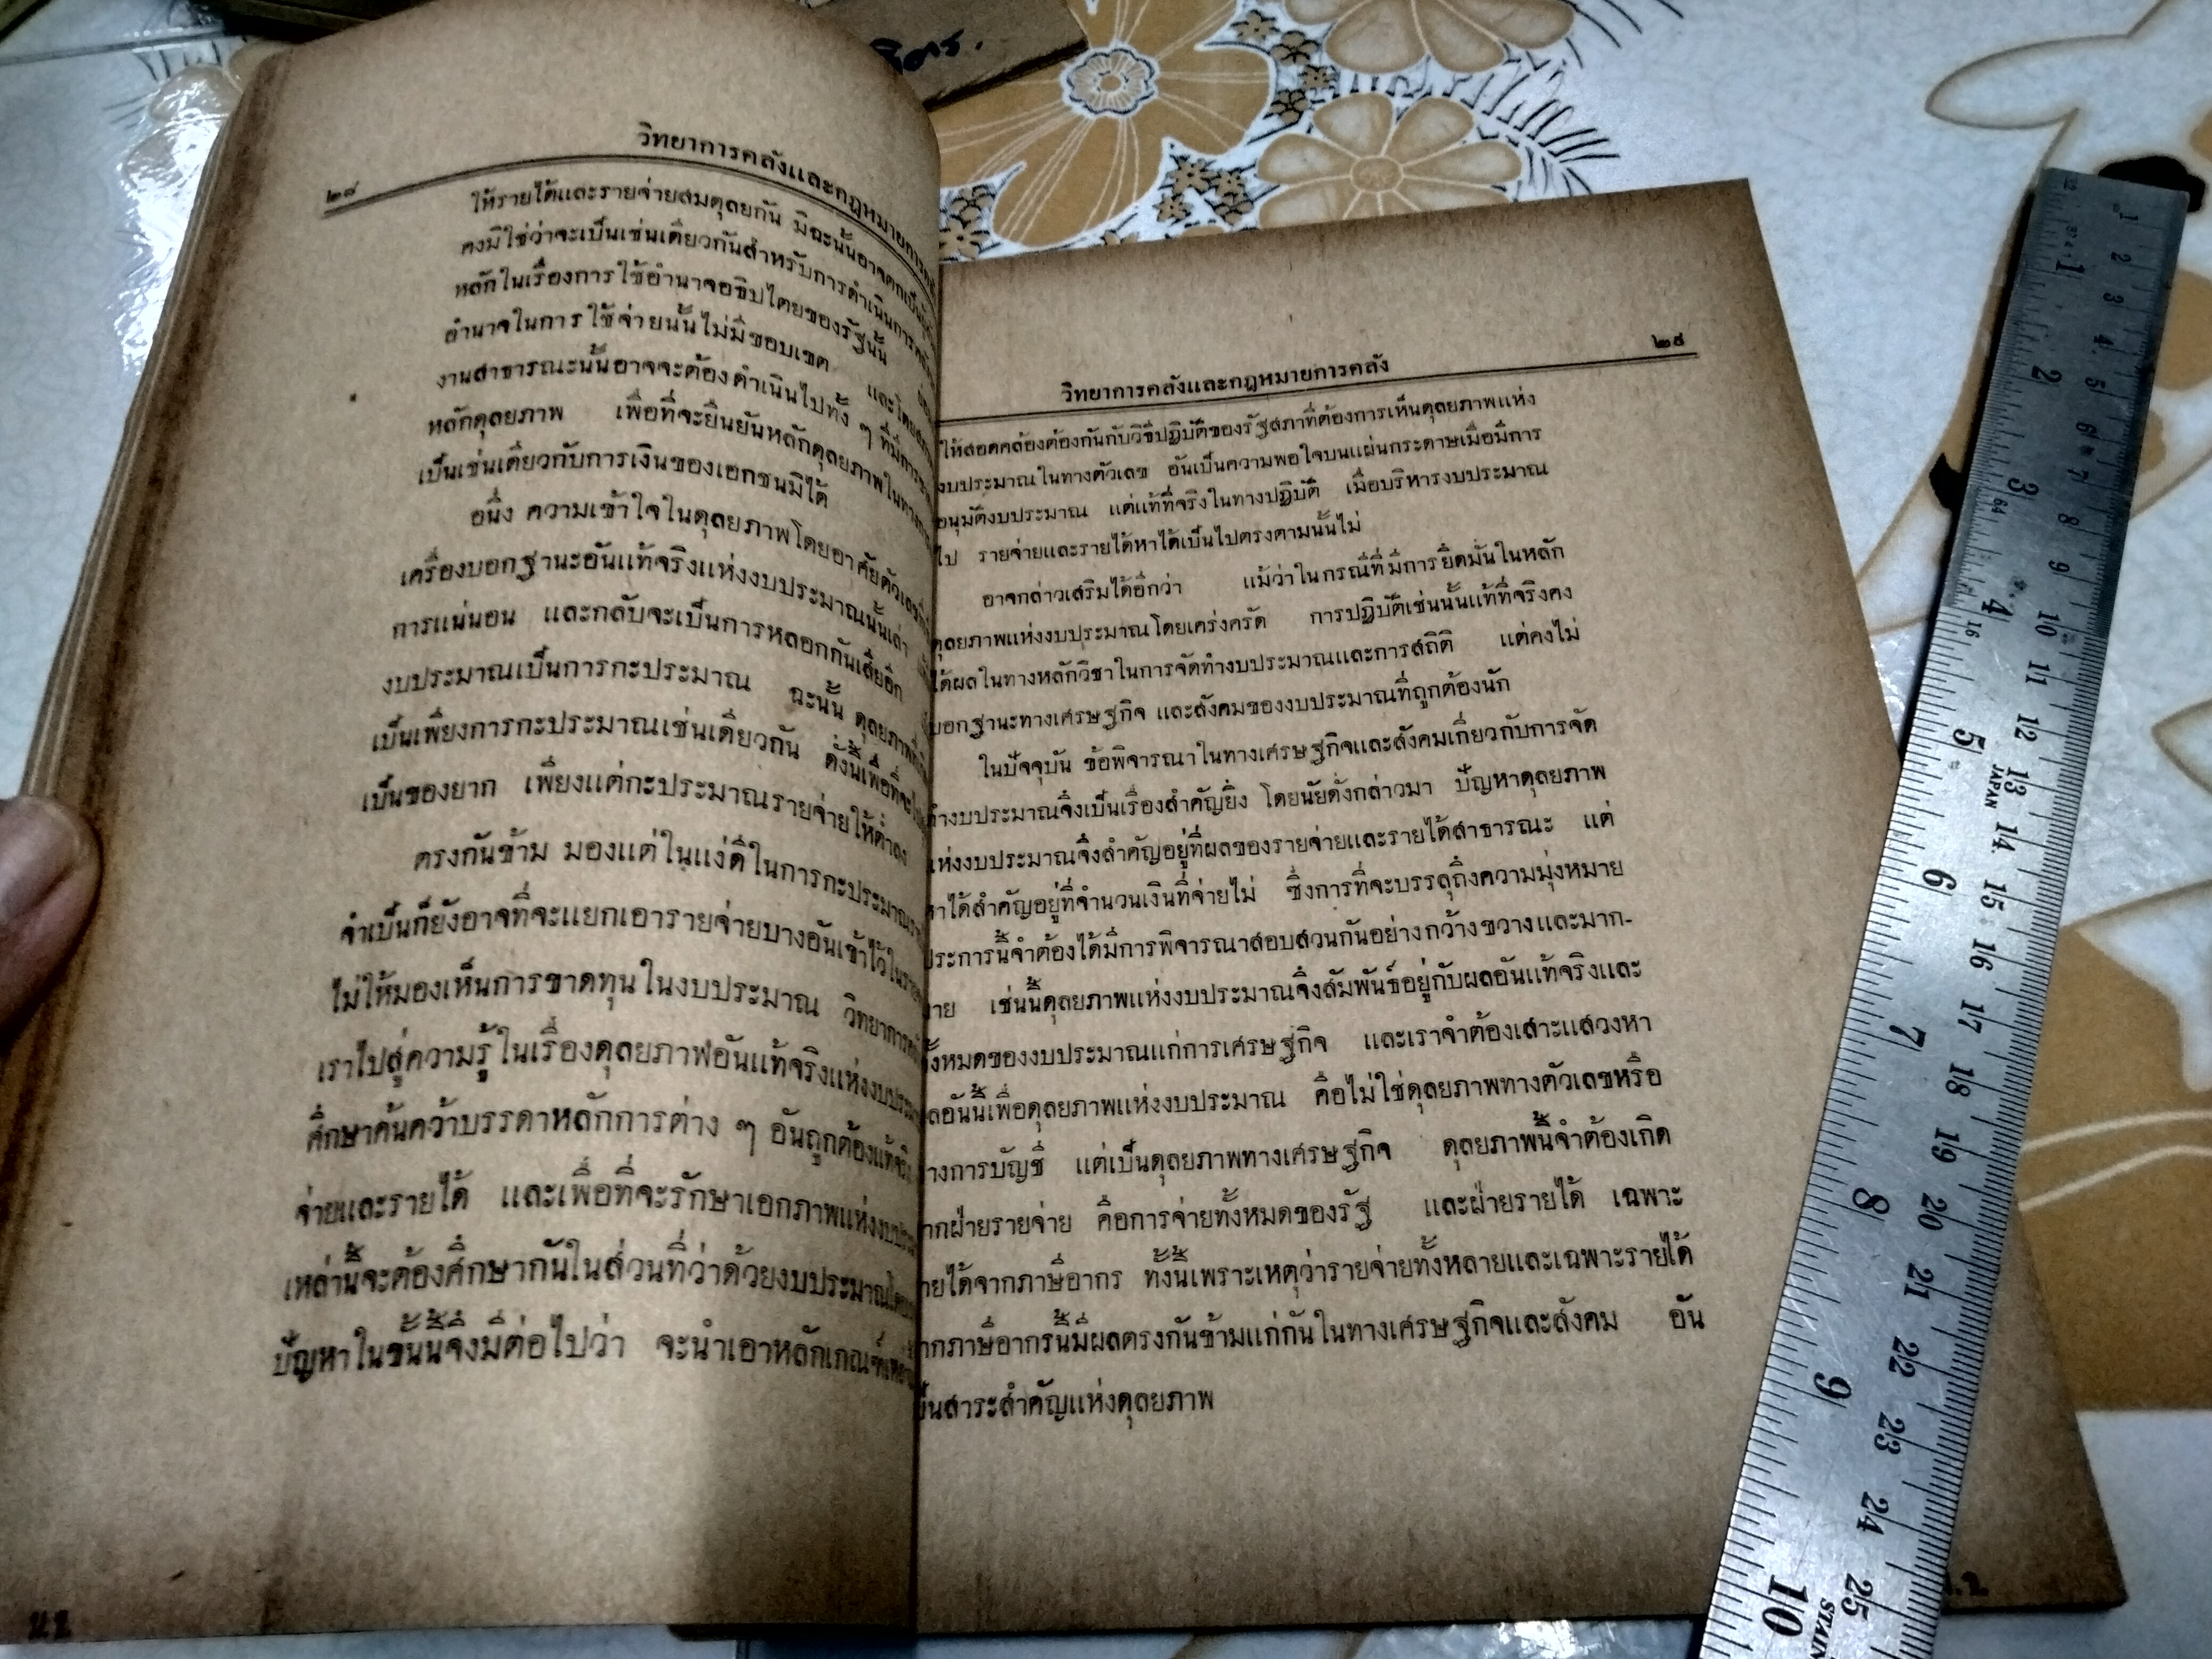 วิทยาการคลังและกฎหมายการคลัง
๒๘
ให้รายได้และรายจ่ายสมดุลยกัน มิฉะนั้นอาจตกเป็น
คงมิใช่ว่าจะเป็นเช่นเดียวกันสำหรับการดำเนินการ
หลักในเรื่องการใช้อำนาจอธิปไตยของรัฐนั้น
อำนาจในการใช้จ่ายนั้นไม่มีขอบเขต และโดย
งานสาธารณะนั้นอาจจะต้องดำเนินไปทั้ง ๆ ที่มีการ
หลักดุลยภาพ เพื่อที่จะยืนยันหลักดุลยภาพในทาง
เป็นเช่นเดียวกับการเงินของเอกชนมิได้
อนึ่ง ความเข้าใจในดุลยภาพโดยอาศัยตัวเลข
เครื่องบอกฐานะอันแท้จริงแห่งงบประมาณนั้นเล่า
การแน่นอน และกลับจะเป็นการหลอกกันเสียอีก
งบประมาณเป็นการกะประมาณ ฉะนั้น ดุลยภาพ
เป็นเพียงการกะประมาณเช่นเดียวกัน ดั่งนี้เพื่อที่จะ
เป็นของยาก เพียงแต่กะประมาณรายจ่ายให้ต่ำลง
ตรงกันข้าม มองแต่ในแง่ดีในการกะประมาณ
จำเป็นก็ยังอาจที่จะแยกเอารายจ่ายบางอันเข้าไว้ใน
ไม่ให้มองเห็นการขาดทุนในงบประมาณ วิทยาการ
เราไปสู่ความรู้ในเรื่องดุลยภาพอันแท้จริงแห่งงบ
ศึกษาค้นคว้าบรรดาหลักการต่าง ๆ อันถูกต้องแท้จริง
จ่ายและรายได้ และเพื่อที่จะรักษาเอกภาพแห่ง
เหล่านี้จะต้องศึกษากันในส่วนที่ว่าด้วยงบประมาณ
ปัญหาในขั้นนี้จึงมีต่อไปว่า จะนำเอาหลักเกณฑ์
๒๙
วิทยาการคลังและกฎหมายการคลัง
ให้สอดคล้องต้องกันกับวิธีปฏิบัติของรัฐสภาที่ต้องการเห็นดุลยภาพแห่ง
งบประมาณในทางตัวเลข อันเป็นความพอใจบนแผ่นกระดาษเมื่อมีการ
อนุมัติงบประมาณ แต่แท้ที่จริงในทางปฏิบัติ เมื่อบริหารงบประมาณ
ไป รายจ่ายและรายได้หาได้เป็นไปตรงตามนั้นไม่
อาจกล่าวเสริมได้อีกว่า แม้ว่าในกรณีที่มีการยึดมั่นในหลัก
ดุลยภาพแห่งงบประมาณโดยเคร่งครัด การปฏิบัติเช่นนั้นแท้ที่จริงคง
ได้ผลในทางหลักวิชาในการจัดทำงบประมาณและการสถิติ แต่คงไม่
บอกฐานะทางเศรษฐกิจ และสังคมของงบประมาณที่ถูกต้องนัก
ในปัจจุบัน ข้อพิจารณาในทางเศรษฐกิจและสังคมเกี่ยวกับการจัด
ทำงบประมาณจึงเป็นเรื่องสำคัญยิ่ง โดยนัยดั่งกล่าวมา ปัญหาดุลยภาพ
แห่งงบประมาณจึงสำคัญอยู่ที่ผลของรายจ่ายและรายได้สาธารณะ แต่
หาได้สำคัญอยู่ที่จำนวนเงินที่จ่ายไม่ ซึ่งการที่จะบรรลุถึงความมุ่งหมาย
ประการนี้จำต้องได้มีการพิจารณาสอบสวนกันอย่างกว้างขวางและมาก-
มาย เช่นนี้ดุลยภาพแห่งงบประมาณจึงสัมพันธ์อยู่กับผลอันแท้จริงและ
ทั้งหมดของงบประมาณแก่การเศรษฐกิจ และเราจำต้องเสาะแสวงหา
ผลอันนี้เพื่อดุลยภาพแห่งงบประมาณ คือไม่ใช่ดุลยภาพทางตัวเลขหรือ
ทางการบัญชี แต่เป็นดุลยภาพทางเศรษฐกิจ ดุลยภาพนี้จำต้องเกิด
จากฝ่ายรายจ่าย คือการจ่ายทั้งหมดของรัฐ และฝ่ายรายได้ เฉพาะ
รายได้จากภาษีอากร ทั้งนี้เพราะเหตุว่ารายจ่ายทั้งหลายและเฉพาะรายได้
จากภาษีอากรนี้มีผลตรงกันข้ามแก่กันในทางเศรษฐกิจและสังคม อัน
เป็นสาระสำคัญแห่งดุลยภาพ
1 2 3 4 5 6 7 8 9 10
1 2 3 4 5 6 7 8 9 10 11 12 13 14 15 16 17 18 19 20 21 22 23 24 25
64
16
JAPAN